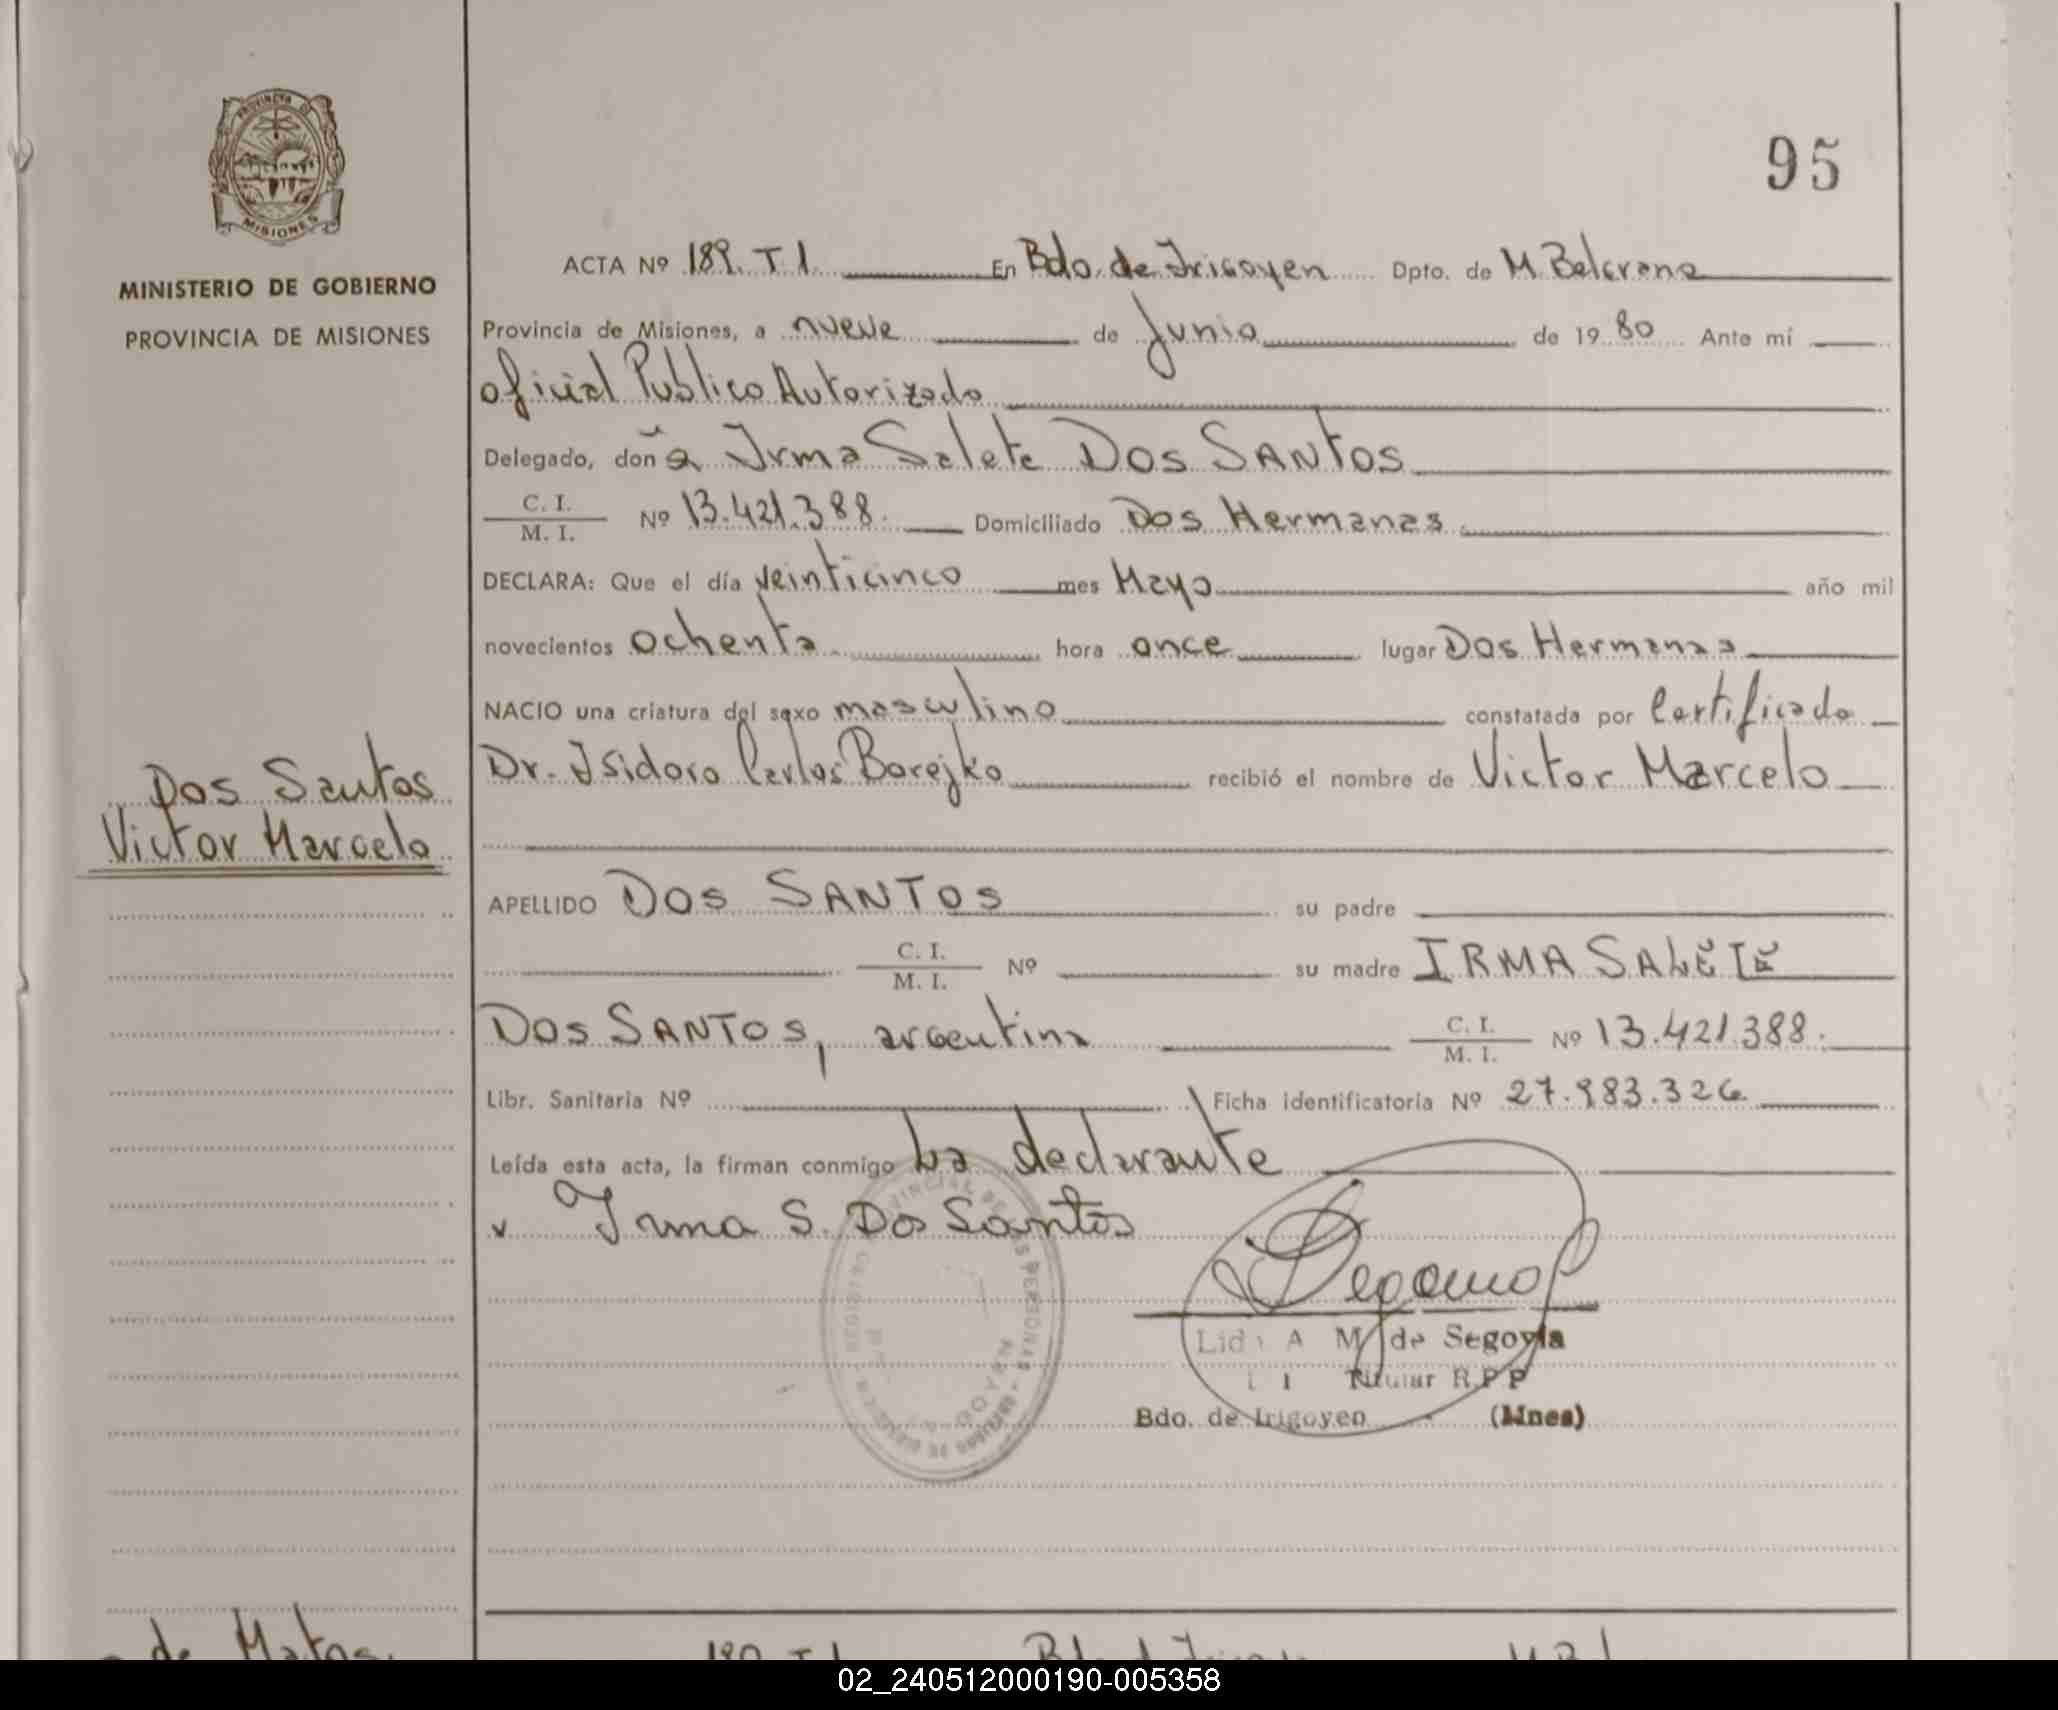 PROVINCIA DE
MISIONES
MINISTERIO DE GOBIERNO
PROVINCIA DE MISIONES
95
ACTA Nº 189. T 1. En Bdo. de Irigoyen Dpto. de M. Belgrano
Provincia de Misiones, a nueve de Junio de 19 80 Ante mí
oficial Publico Autorizado
Delegado, don a Irma Salete Dos SANTOS
C. I.
M. I. Nº 13.421.388. Domiciliado Dos Hermanas
DECLARA: Que el día veinticinco mes Mayo año mil
novecientos ochenta hora once lugar Dos Hermanas
NACIO una criatura del sexo masculino constatada por Certificado
Dr. Isidoro Carlos Borejko recibió el nombre de Victor Marcelo
Dos Santos
Victor Marcelo
APELLIDO Dos SANTOS su padre
C. I.
M. I. Nº su madre IRMA SALETE
Dos SANTOS, argentina C. I.
M. I. Nº 13.421.388.
Libr. Sanitaria Nº Ficha identificatoria Nº 27.983.326
Leída esta acta, la firman conmigo La declarante
v Irma S. Dos Santos
Lid A M de Segovia
Titular R.P.P
Bdo. de Irigoyen (Mnes)
de Matos.
02_240512000190-005358